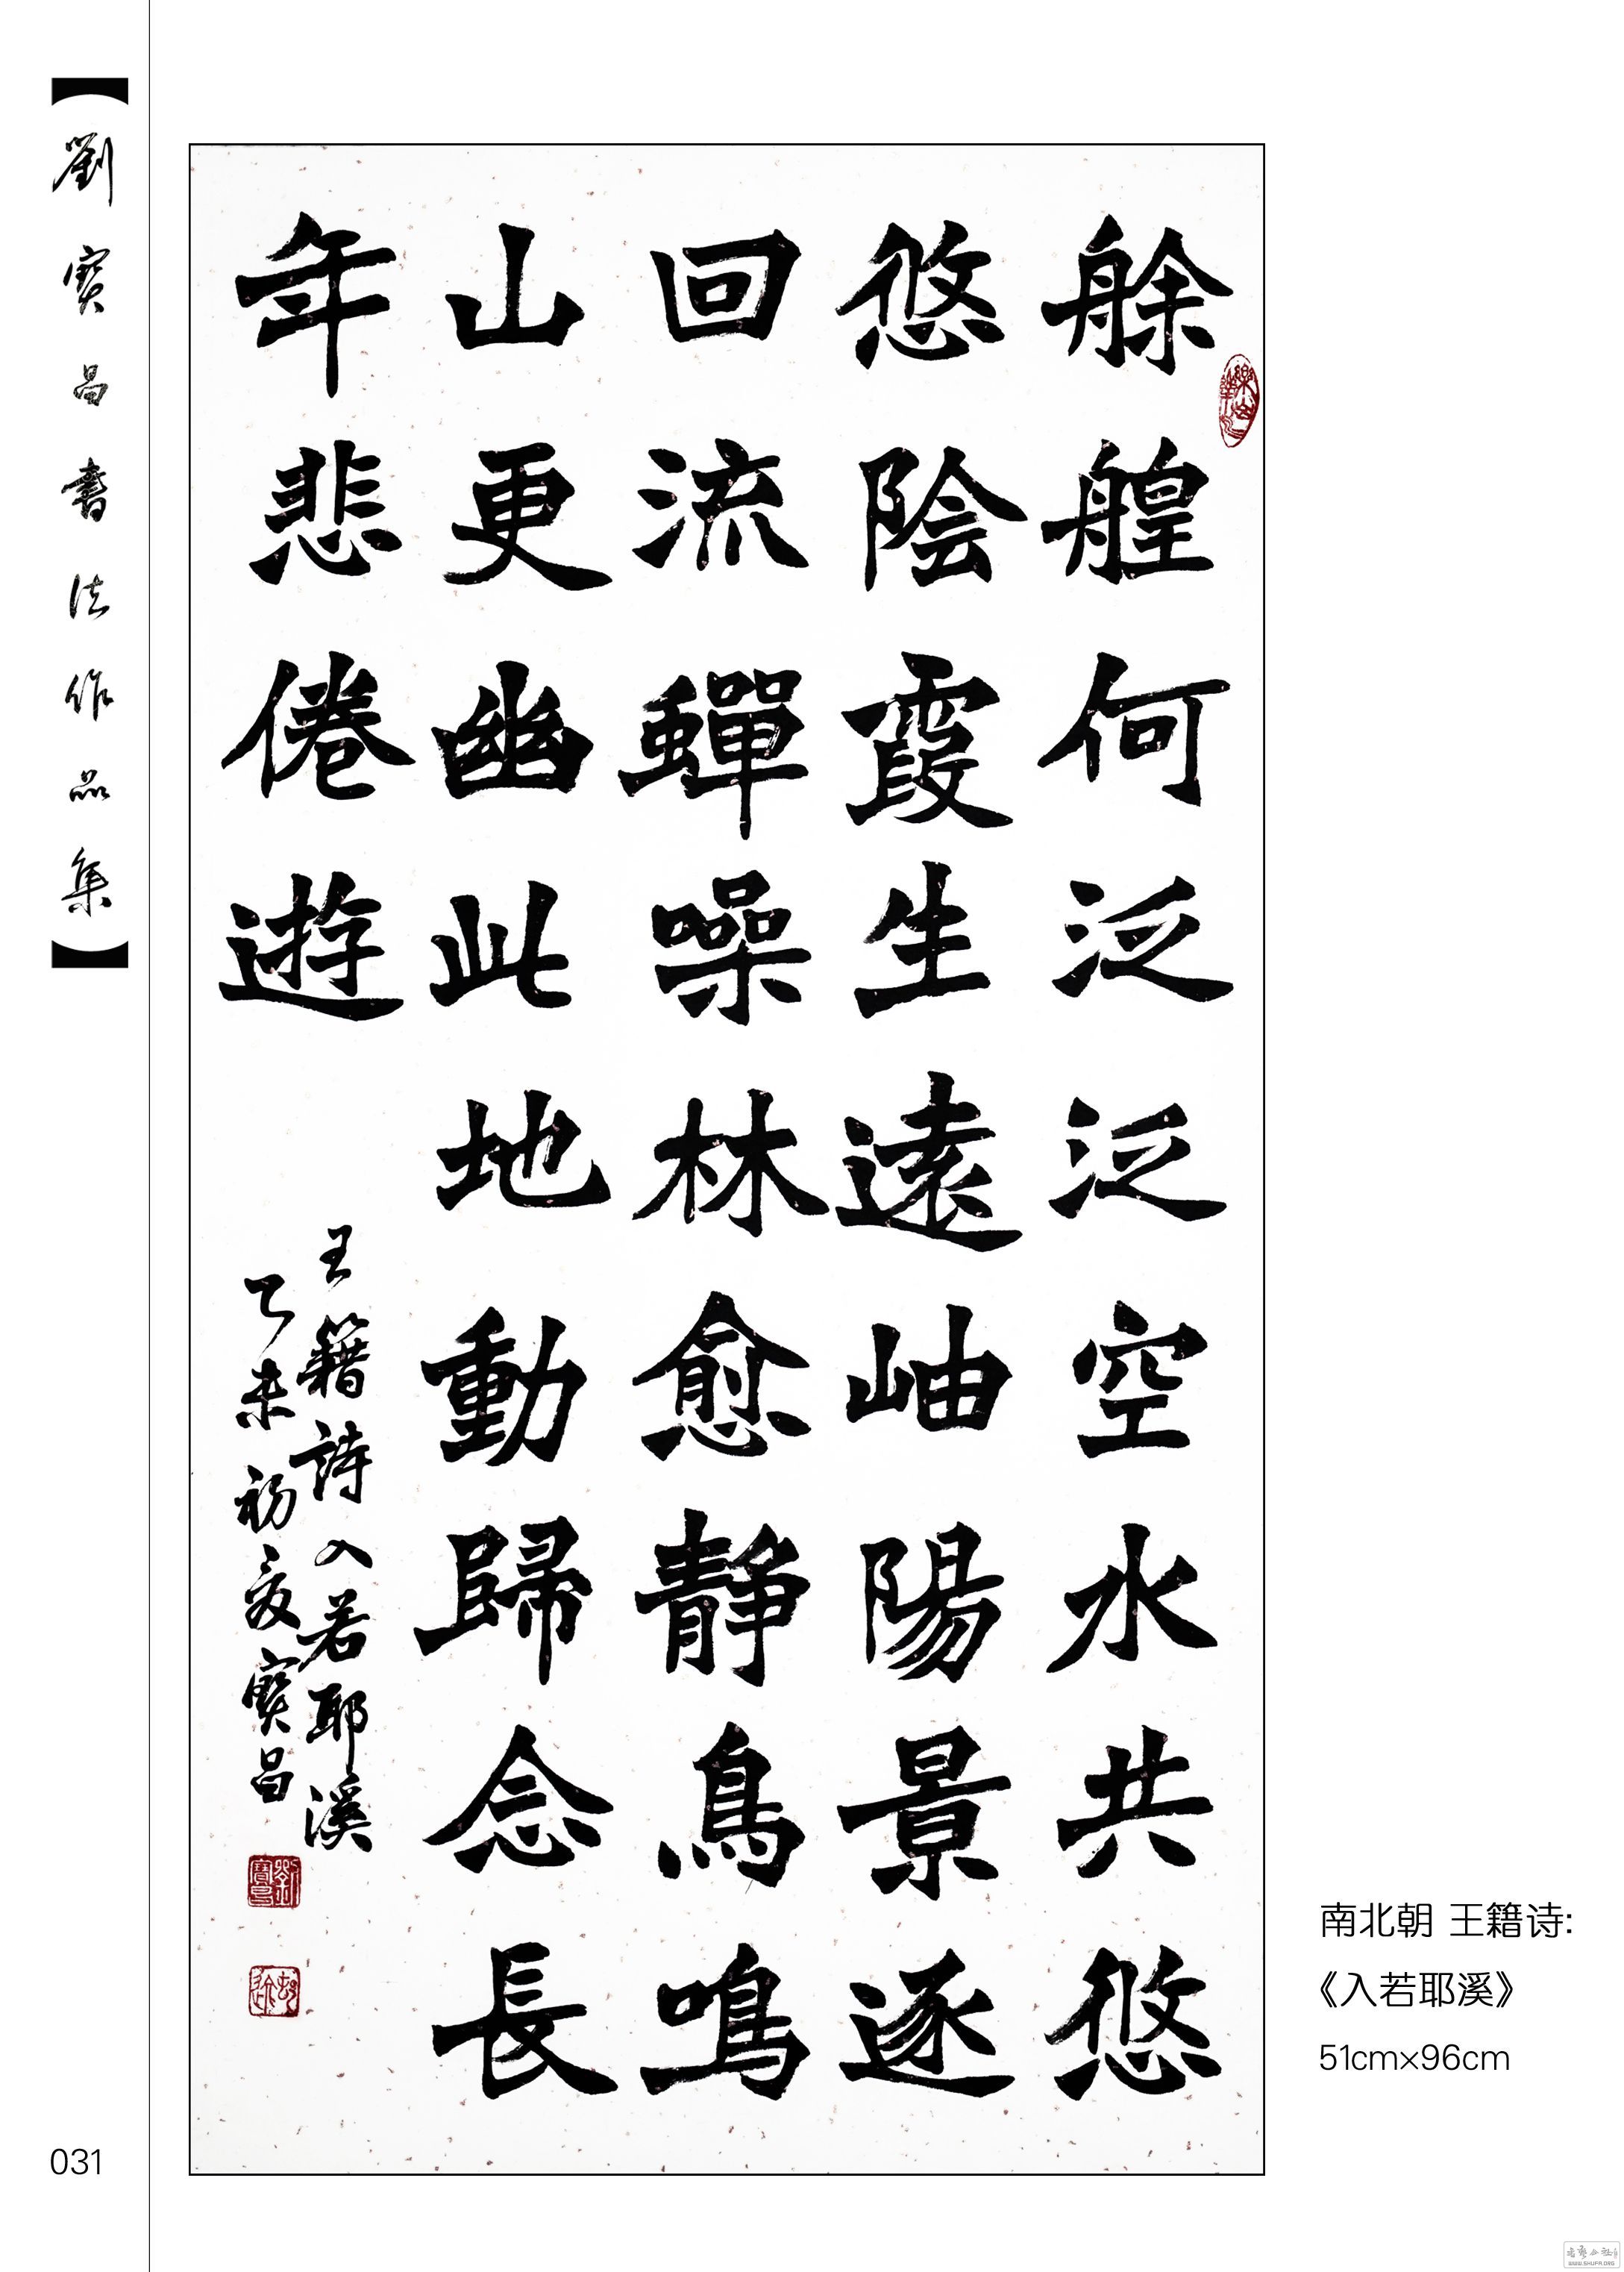 【劉寶昌書法作品集】
艅艎何泛泛空水共悠
悠陰霞生遠岫陽景逐
回流蟬噪林愈静鳥鳴
山更幽此地動歸念長
年悲倦遊
王籍詩入若耶溪
乙未初夏寶昌
劉寶昌
南北朝 王籍诗:
《入若耶溪》
51cm×96cm
031
WWW.SHUFA.ORG